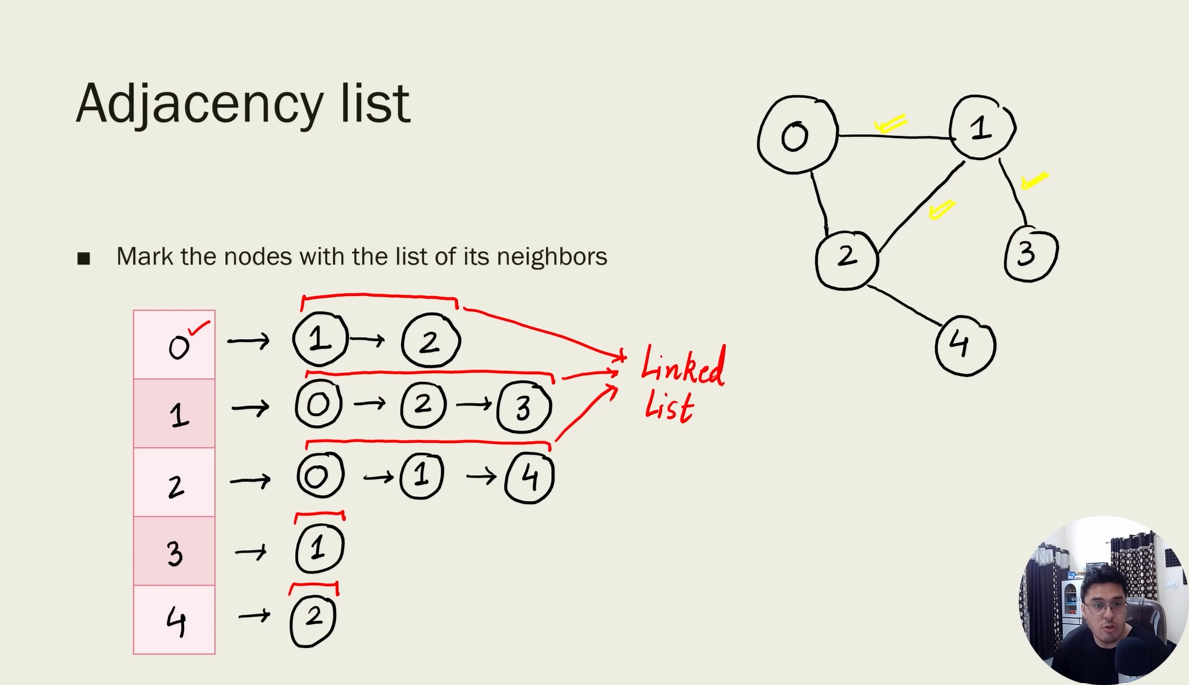 Adjacency list
■ Mark the nodes with the list of its neighbors
0 → 1 → 2
1 → 0 → 2 → 3
2 → 0 → 1 → 4
3 → 1
4 → 2
Linked
List
0 1
2 3
4